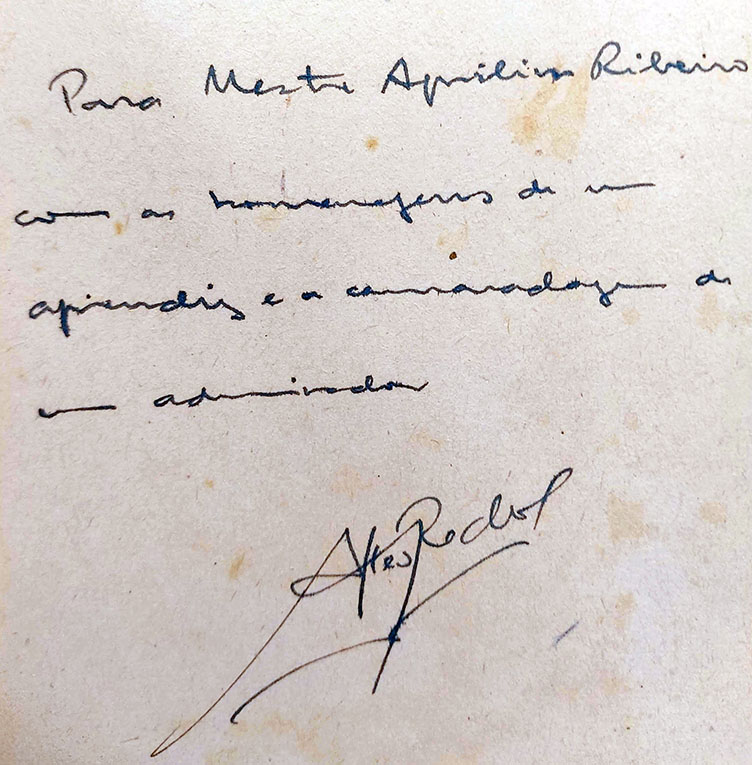 Para Mestre Aquilino Ribeiro
com as homenagens de um
aprendiz e a camaradagem de
um admirador
Alves Redol